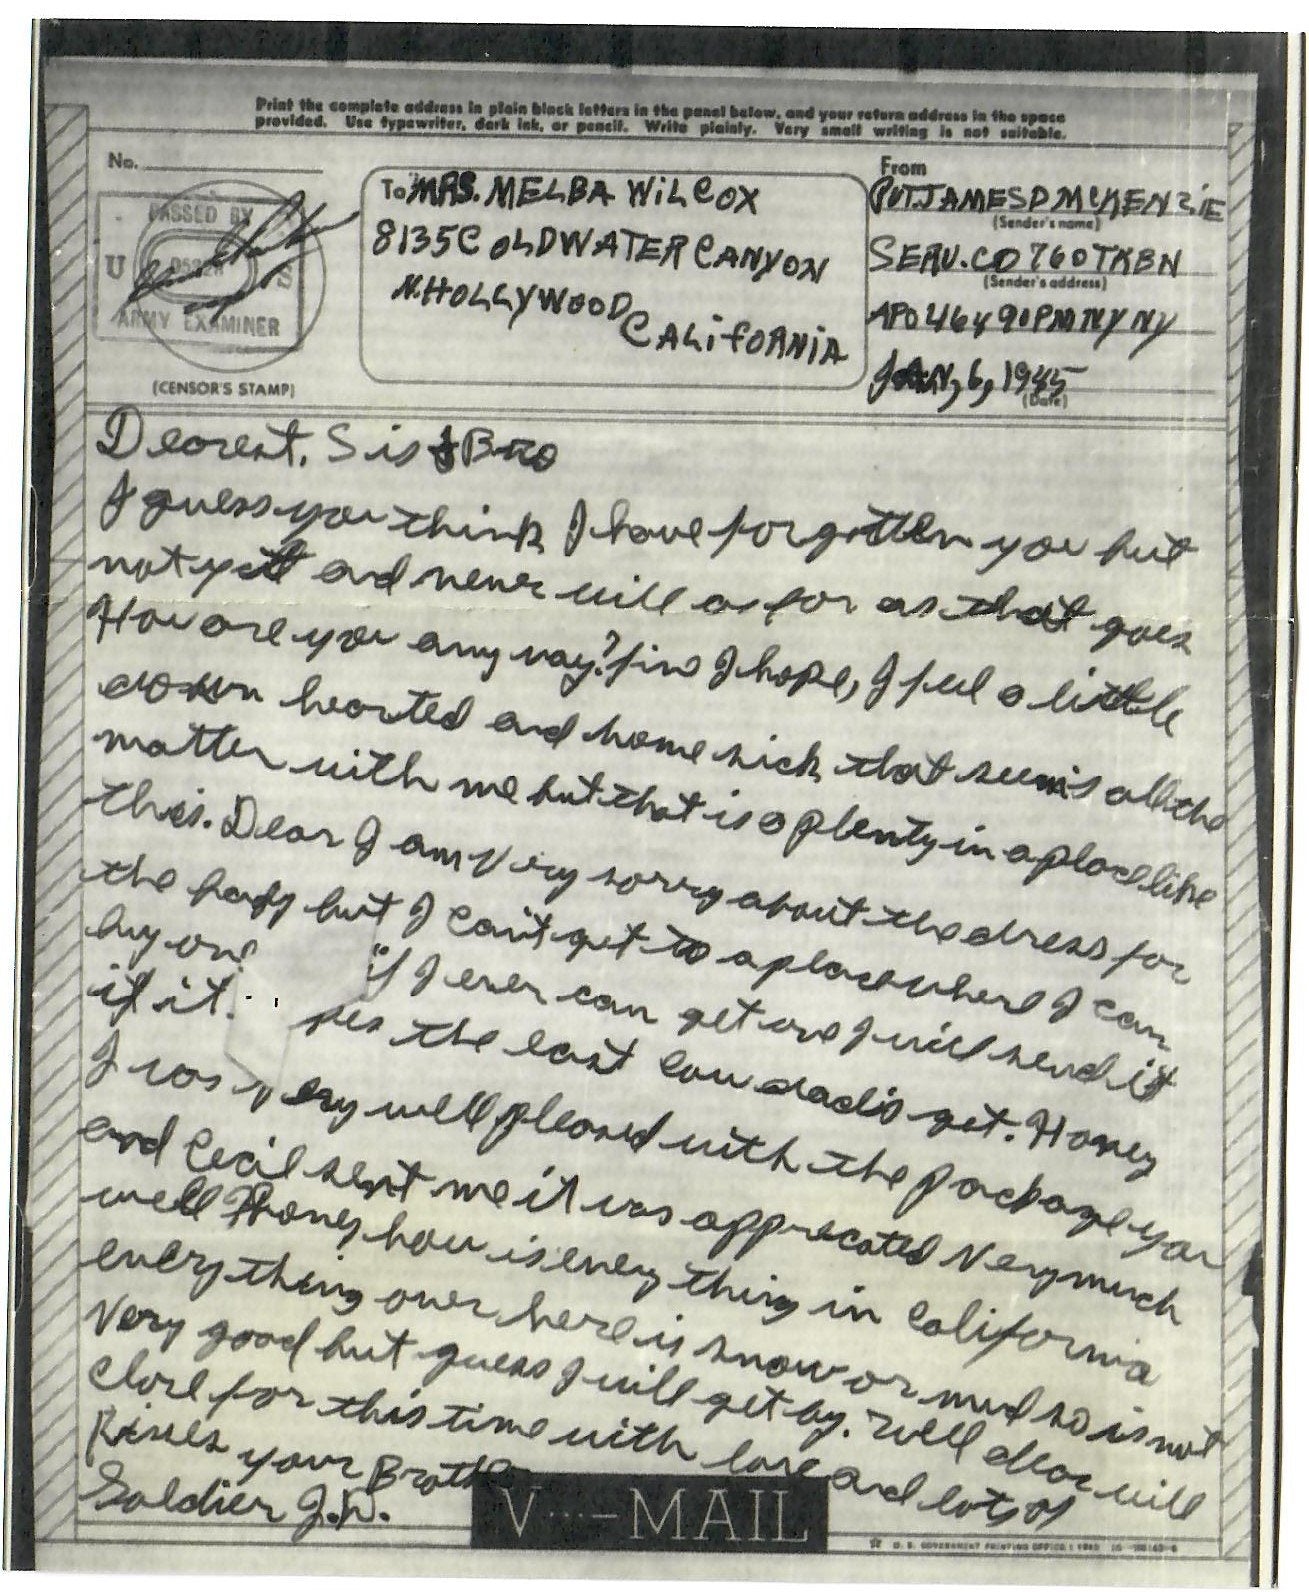 Print the complete address in plain block letters in the panel below, and your return address in the space
provided. Use typewriter, dark ink, or pencil. Write plainly. Very small writing is not suitable.
No.
PASSED BY
U S
ARMY EXAMINER
(CENSOR'S STAMP)
To MRS. MELBA WiLCOX
8135 COLDWATER CANYON
N. HOLLYWOOD
CALiFORNiA
From
PVT. JAMES D MCKENZiE
(Sender's name)
SERV. CO 760 TKBN
(Sender's address)
APO 464 % PM NY NY
JAN, 6, 1945
(Date)
Dearest, Sis & Bro
I guess you think I have forgotten you but
not yet and never will as far as that goes
How are you any way? fine I hope, I feel a little
down hearted and home sick that seems all the
matter with me but that is a plenty in a place like
this. Dear I am Very sorry about the dress for
the baby but I can't get to a place where I can
buy one if I ever can get one I will send it
if it the last cow dad's get. Honey
I was very well pleased with the package you
and Cecil sent me it was apprecated Very much
well Honey how is every thing in California
everything over here is snow or mud so is not
Very good but guess I will get by. Well dear will
close for this time with love and lots of
Kisses your Brother
Soldier J.D.
V...-MAIL
U. S. GOVERNMENT PRINTING OFFICE